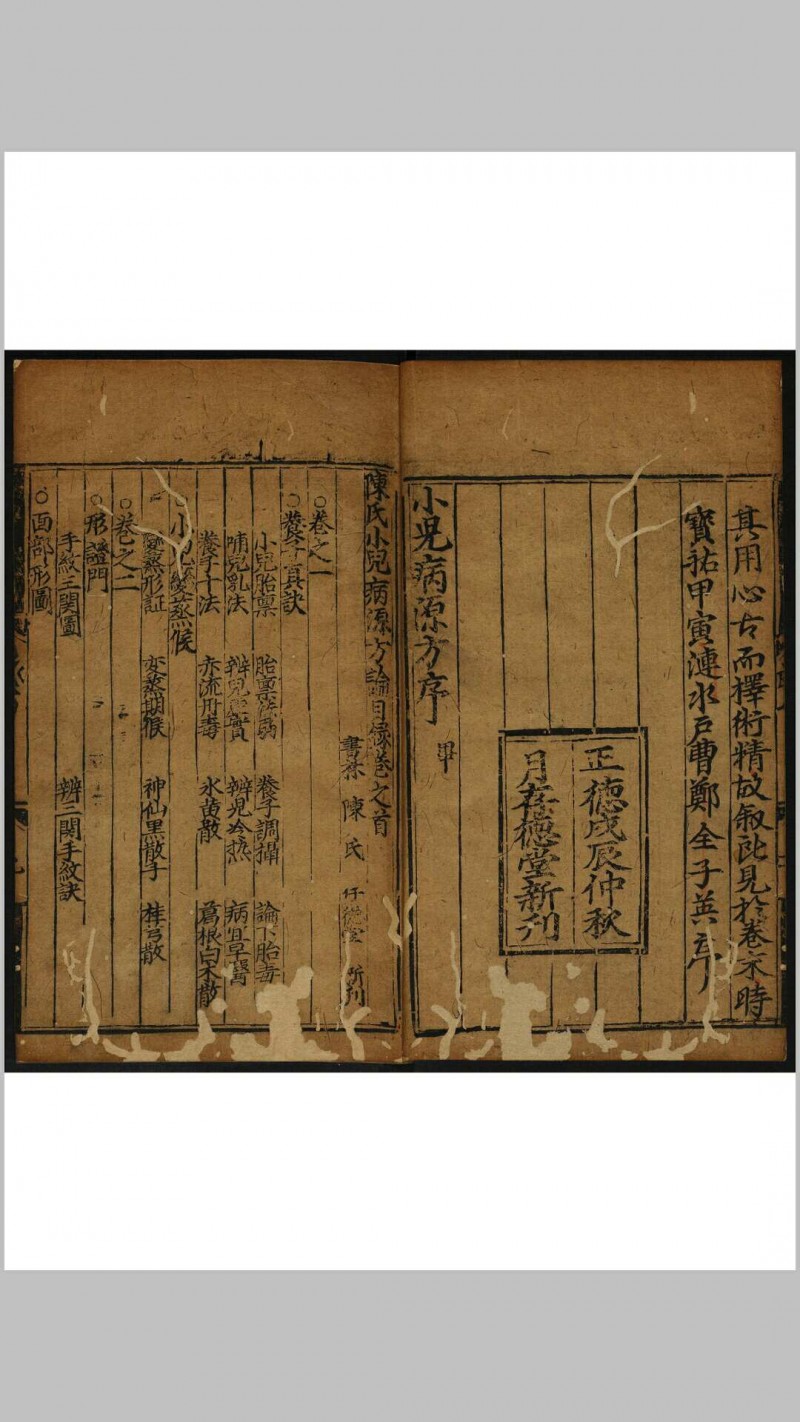 其用心古而擇術精故叙此見於卷末時
寳祐甲寅漣水戸曹鄭全子英序
正德戊辰仲秋
月存德堂新刊
小児病源方序 畢
陳氏小兒病源方論目録卷之首
書林 陳氏 存德堂 新刊
○卷之一
○養子真訣
小兒胎禀 胎禀 養子調攝 論下胎毒
哺兒乳法 辨兒虚實 辨児冷热 病宜早醫
養子十法 赤流丹毒 氷黄散 葛根白术散
○小児變蒸候
變蒸形証 变蒸期候 神仙黒散子 桂芎散
○卷之二
○形證門
手紋三関圖 辨三関手紋訣
○面部形圖